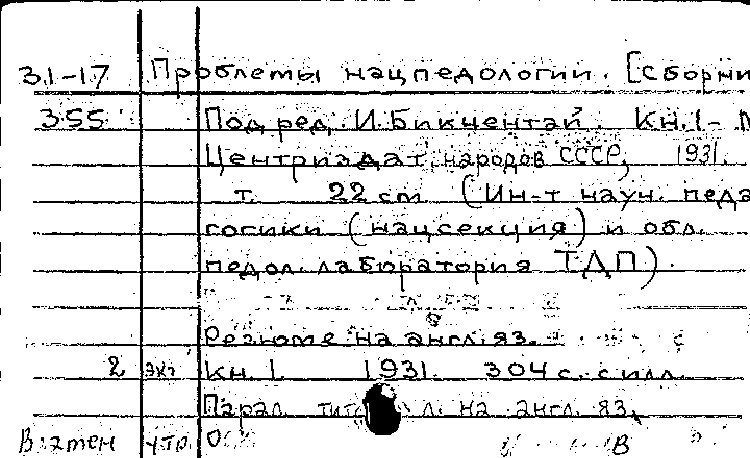 31-17 Проблемы нацпедологии. [Сборни
355 Под ред. И. Бикчентай. Кн. 1- М
Центриздат народов СССР, 1931.
т. 22 cm (Ин-т науч. педа
гогики (нацсекция) и обл.
педол. лаборатория ТДП).
Резюме на англ. яз.
2 экз Кн. 1. 1931. 304 с. с илл.
Парал. тит. л. на англ. яз.
Взамен утр.